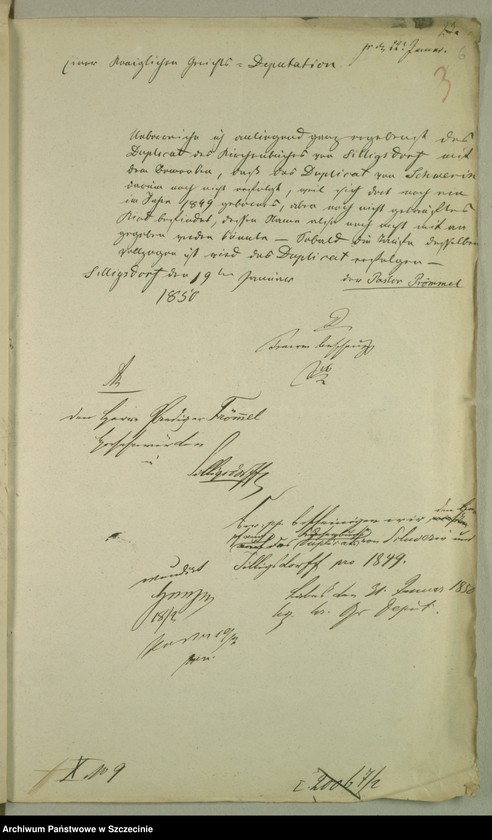 pr. d. 22t Januar.
3
Einer Königlichen Gerichts-Deputation
Ueberreiche ich anliegend ganz ergebenst das
Duplicat des Kirchenbuches von Silligsdorf mit
dem Bemerken, daß das Duplicat von Schwerin
darum noch nicht erfolgt, weil sich dort noch ein
im Jahre 1849 geborenes, aber noch nicht getauftes
Kind befindet, dessen Name also noch nicht mit an
gegeben werden könnte — Sobald die Taufe desselben
vollzogen ist wird das Duplicat erfolgen —
Silligsdorf den 19ten Januar
1850
der Pastor Frömmel
An
den Herrn Prediger Frömmel
Hochehrwürden
in
Silligsdorff
bescheinigen wir
Duplicat von Schwerin und
Silligsdorff pro 1849.
Labes den 31. Januar 1850
Kg. Kr. Gr. Deput.
mundirt
18/2.
X No 9
Archiwum Państwowe w Szczecinie